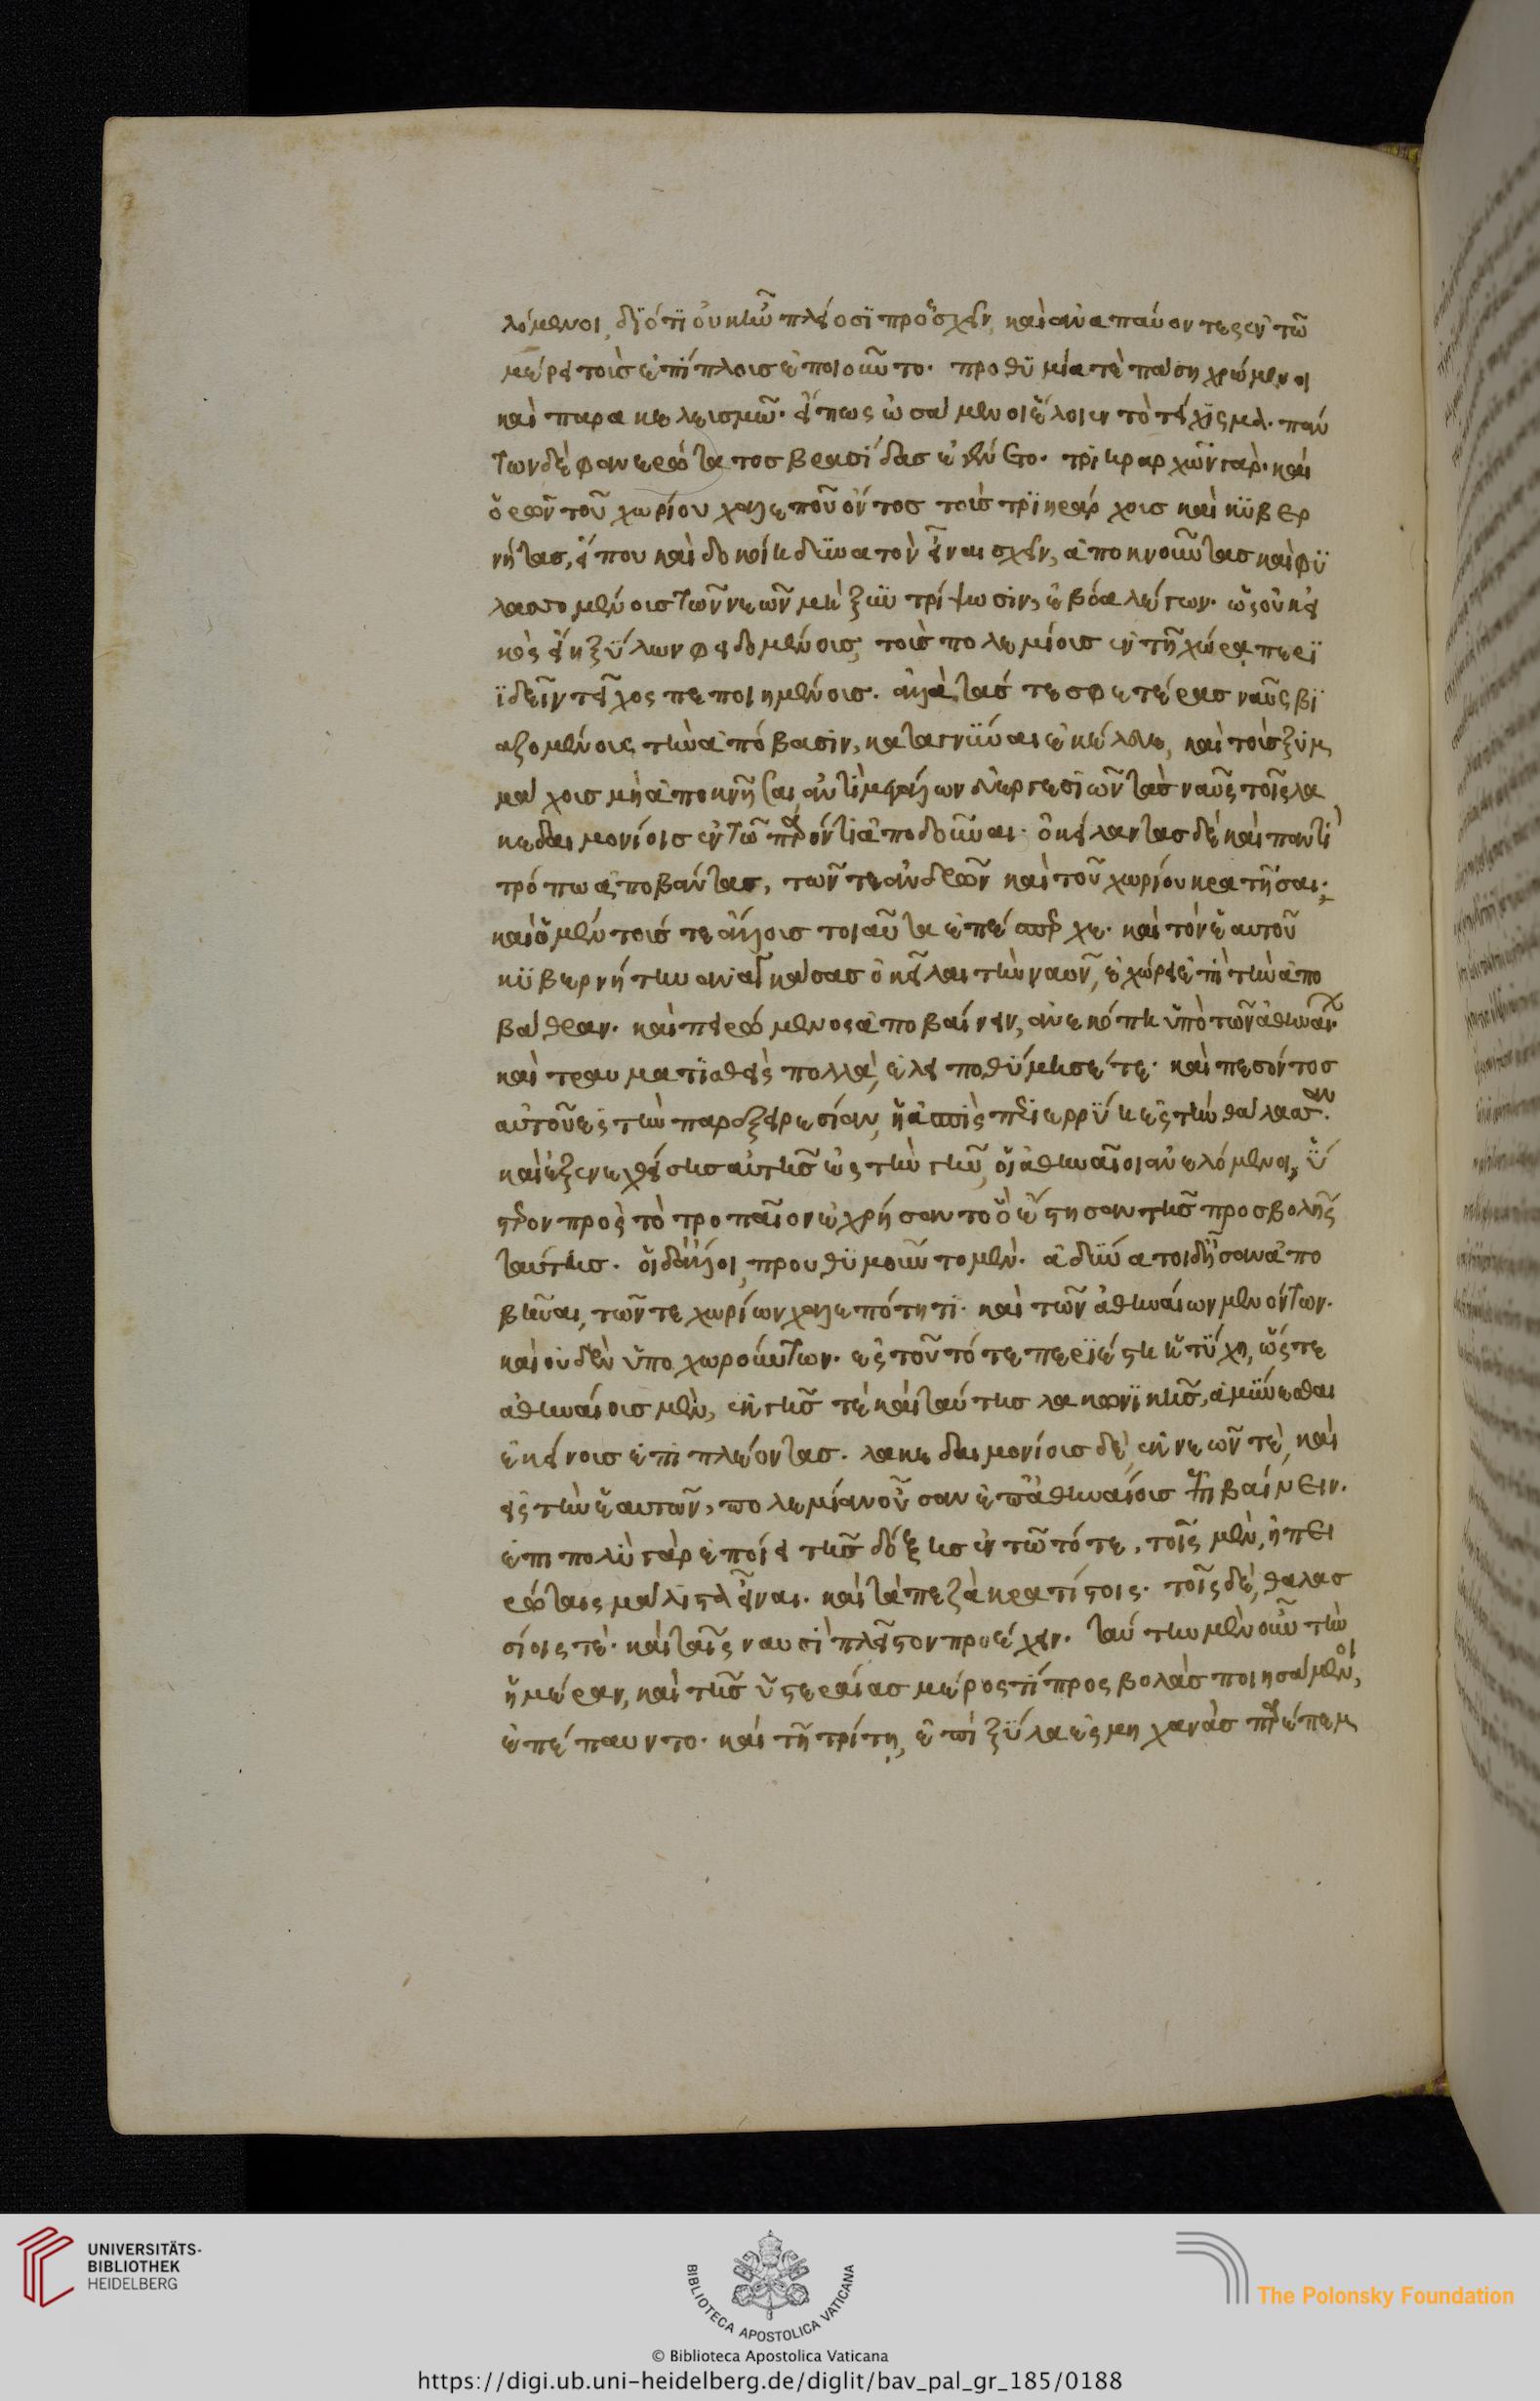 λόμενοι, διότι οὐκ ἦν πλέοσι προσσχεῖν, καὶ ἀναπαύοντες ἐν τῶ
μέρει τοὺς ἐπίπλους ἐποιοῦντο. προθυμία τὲ πάση χρώμενοι
καὶ παρακελευσμῶ. εἴ πως ὠσάμενοι ἕλοιεν τὸ τείχισμα. πάν
των δὲ φανερώτατος βρασίδας ἐγένετο. τριηραρχῶν γὰρ. καὶ
ὁρῶν τοῦ χωρίου χαλεποῦ ὄντος τοὺς τριηράρχους καὶ κυβερ
νήτας, εἴ που καὶ δοκοίη δυνατὸν εἶναι σχεῖν, ἀποκνοῦντας καὶ φυ
λασσομένους τῶν νεῶν μὴ ξυντρίψωσιν, ἐβόα λέγων. ὡς οὐκ εἰ
κὸς εἴη ξύλων φειδομένους, τοὺς πολεμίους ἐν τῆ χώρᾳ περι
ϊδεῖν τεῖχος πεποιημένους. ἀλλὰ τάς τε σφετέρας ναῦς βι
αζομένους τὴν ἀπόβασιν, καταγνύναι ἐκέλευε, καὶ τοὺς ξυμ
μάχους μὴ ἀποκνῆσαι ἀντὶ μεγάλων εὐεργεσιῶν τὰς ναῦς τοῖς λα
κεδαιμονίοις ἐν τῶ παρόντι ἀποδοῦναι. ὀκείλαντας δὲ καὶ παντὶ
τρόπω ἀποβάντας, τῶν τε ἀνδρῶν καὶ τοῦ χωρίου κρατῆσαι.
καὶ ὁ μὲν τούς τε ἄλλους τοιαῦτα ἐπέσπερχε. καὶ τὸν ἑαυτοῦ
κυβερνήτην ἀναγκάσας ὀκεῖλαι τὴν ναῦν, ἐχώρει ἐπὶ τὴν ἀπο
βάθραν. καὶ πειρώμενος ἀποβαίνειν, ἀνεκόπη ὑπὸ τῶν ἀθηναίων
καὶ τραυματισθεὶς πολλὰ, ἐλειποθύμησέ τε. καὶ πεσόντος
αὐτοῦ ἐς τὴν παρεξειρεσίαν, ἡ ἀσπὶς περιερρύη ἐς τὴν θάλασσαν.
καὶ ἐξενεχθείσης αὐτῆς ἐς τὴν γῆν, οἱ ἀθηναῖοι ἀνελόμενοι, ὕ
στερον πρὸς τὸ τροπαῖον ἐχρήσαντο ὃ ἔστησαν τῆς προσβολῆς
ταύτης. οἱ δ' ἄλλοι, προυθυμοῦντο μὲν. ἀδύνατοι δ' ἦσαν ἀπο
βῆναι, τῶν τε χωρίων χαλεπότητι. καὶ τῶν ἀθηναίων μενόντων.
καὶ οὐδὲν ὑποχωρούντων. ἐς τοῦτό τε περιέστη ἡ τύχη, ὥστε
ἀθηναίους μὲν, ἐκ γῆς τὲ καὶ ταύτης λακωνικῆς, ἀμύνεσθαι
ἐκείνους ἐπιπλέοντας. λακεδαιμονίους δὲ, ἐκ νεῶν τὲ, καὶ
εἰς τὴν ἑαυτῶν, πολεμίαν οὖσαν ἐπ' ἀθηναίοις ἐπιβαίνειν.
ἐπὶ πολὺ γὰρ ἐποίει τῆς δόξης ἐν τῶ τότε, τοῖς μὲν, ἠπει
ρώταις μάλιστα εἶναι. καὶ τὰ πεζὰ κρατίστοις. τοῖς δὲ, θαλασ
σίοις τὲ. καὶ ταῖς ναυσὶ πλεῖστον προέχειν. ταύτην μὲν οὖν τὴν
ἡμέραν, καὶ τῆς ὑστεραίας μέρος τί προσβολὰς ποιησάμενοι,
ἐπέπαυντο. καὶ τῆ τρίτη, ἐπὶ ξύλα ἐς μηχανὰς παρέπεμ
UNIVERSITÄTS-
BIBLIOTHEK
HEIDELBERG
BIBLIOTECA APOSTOLICA VATICANA
The Polonsky Foundation
© Biblioteca Apostolica Vaticana
https://digi.ub.uni-heidelberg.de/diglit/bav_pal_gr_185/0188